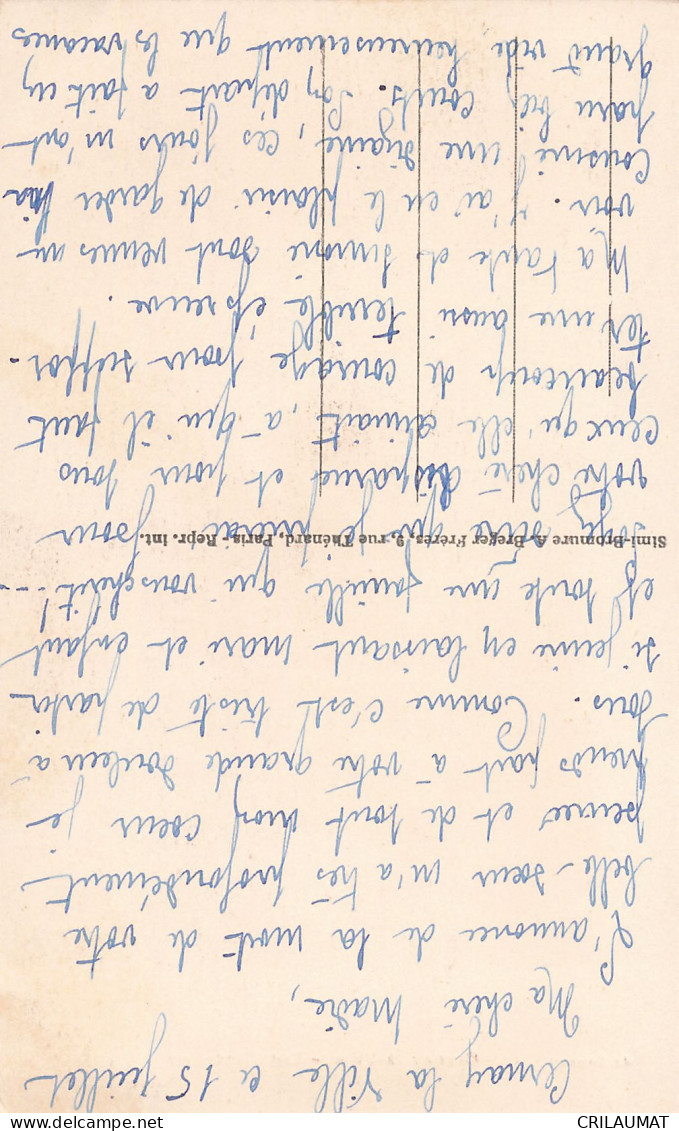 Cernay la Ville le 15 Juillet
Ma chère Marie,
L'annonce de la mort de votre
belle-sœur m'a très profondément
peinée et de tout mon coeur je
prends part à votre grande douleur à
tous. Comme c'est triste de partir
si jeune en laissant mari et enfant
et toute une famille qui vous chérit!...
Soyez sûre que je prierai pour
votre chère disparue et pour tous
ceux qu'elle aimait, à qui il faut
beaucoup de courage pour suppor-
ter une aussi terrible épreuve.
Ma tante et Simone sont venues me
voir. J'ai eu le plaisir de garder ma
cousine une dizaine, ces jours m'ont
paru bien courts. Son départ a fait un
grand vide heureusement que les vacances
Simi-Bromure A. Breger Frères, 9, rue Thénard, Paris - Repr. int.
CRILAUMAT